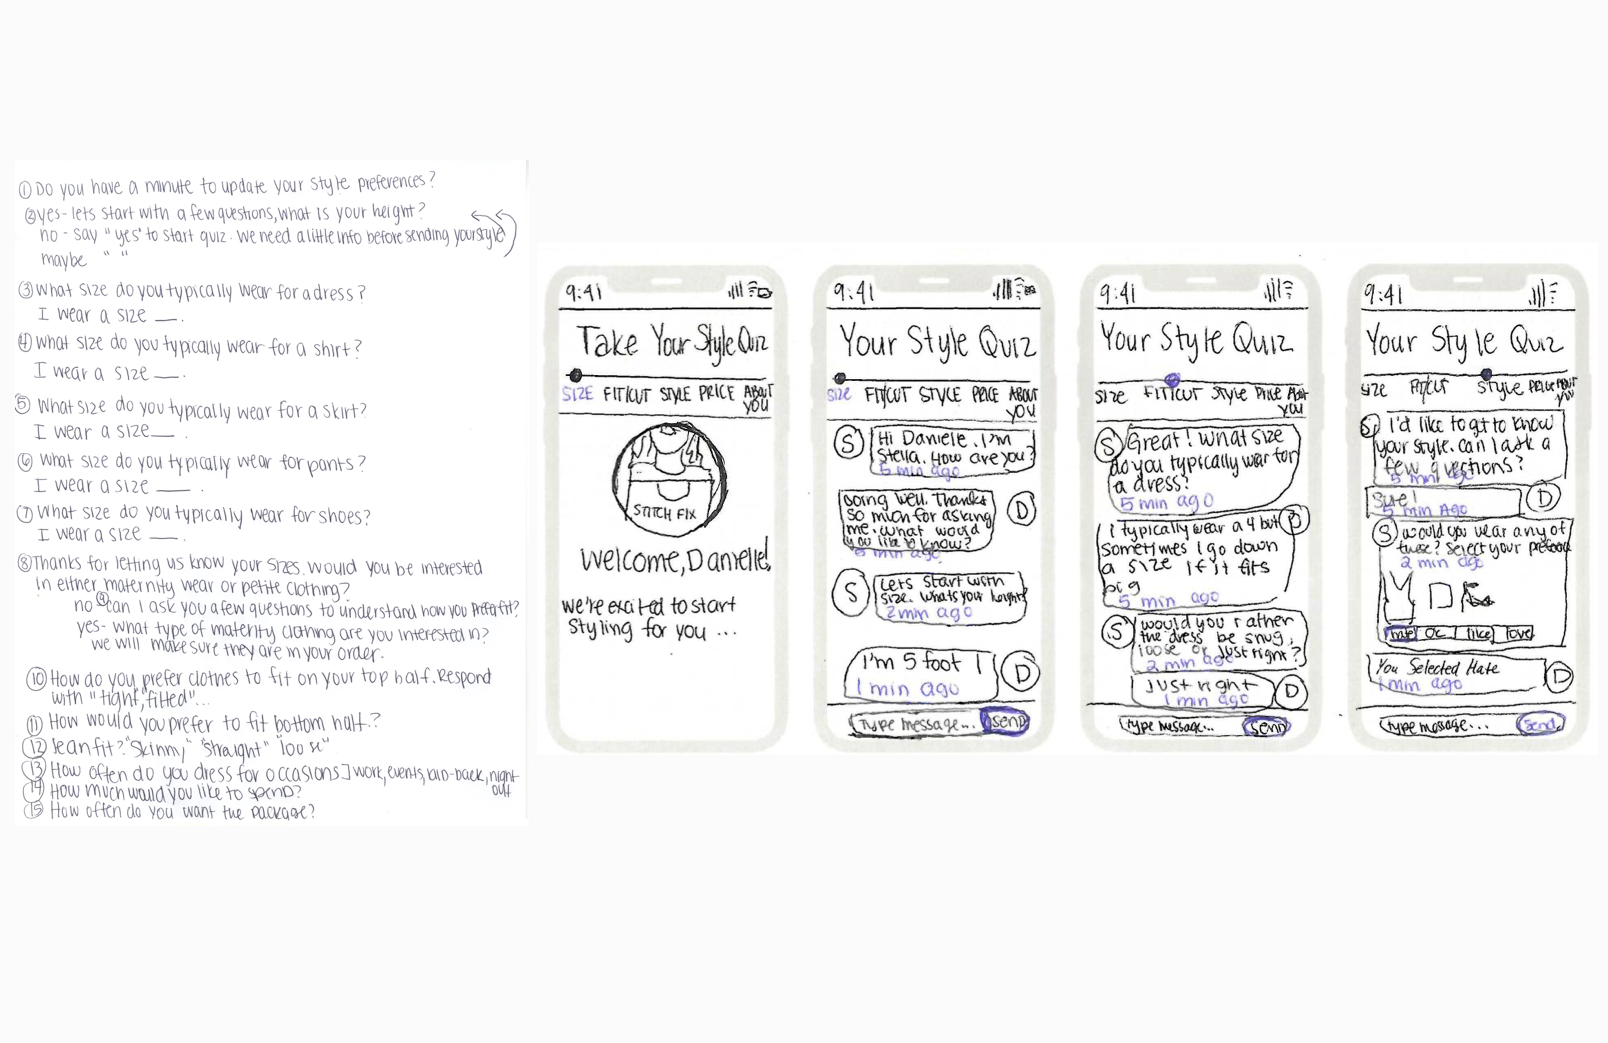 ① Do you have a minute to update your style preferences?
② yes- lets start with a few questions, what is your height?
no - say "yes" to start quiz. We need a little info before sending your style
maybe " "
③ What size do you typically wear for a dress?
I wear a size __.
④ What size do you typically wear for a shirt?
I wear a size __.
⑤ What size do you typically wear for a skirt?
I wear a size __.
⑥ What size do you typically wear for pants?
I wear a size __.
⑦ What size do you typically wear for shoes?
I wear a size __.
⑧ Thanks for letting us know your sizes. Would you be interested
in either maternity wear or petite clothing?
no ⑨ can I ask you a few questions to understand how you prefer fit?
yes- what type of maternity clothing are you interested in?
we will make sure they are in your order.
⑩ How do you prefer clothes to fit on your top half. Respond
with "tight, "fitted"...
⑪ How would you prefer to fit bottom half?
⑫ Jean fit? "Skinny" "straight" "loose"
⑬ How often do you dress for occasions] work, events, laid-back, night
out
⑭ How much would you like to spend?
⑮ How often do you want the package?
9:41
Take Your Style Quiz
SIZE FIT/CUT STYLE PRICE ABOUT
YOU
STITCH FIX
Welcome, Danielle!
we're excited to start
styling for you ...
9:41
Your Style Quiz
SIZE FIT/CUT STYLE PRICE ABOUT
YOU
S
Hi Daniele. I'm
Stella. How are you?
5 min ago
Doing well. Thanks
so much for asking
me. What would
you like to know?
5 min ago
D
S
Lets start with
size. Whats your height?
2 min ago
I'm 5 foot 1
1 min ago
D
Type message... Send
9:41
Your Style Quiz
SIZE FIT/CUT Style Price About
you
S
Great! What size
do you typically war for
a dress?
5 min ago
I typically wear a 4 but
sometimes I go down
a size if it fits
big
5 min ago
D
S
would you rather
the dress be snug,
loose or just right?
2 min ago
Just right
1 min ago
D
Type message... Send
9:41
Your Style Quiz
SIZE Fit/Cut Style Price About
you
S
I'd like to gt to know
your style. can I ask a
few questions?
5 min ago
Sure!
5 min Ago
D
S
would you wear any of
these? Select your
2 min ago
hate OK like love
You Selected Hate
1 min ago
D
Type message... Send